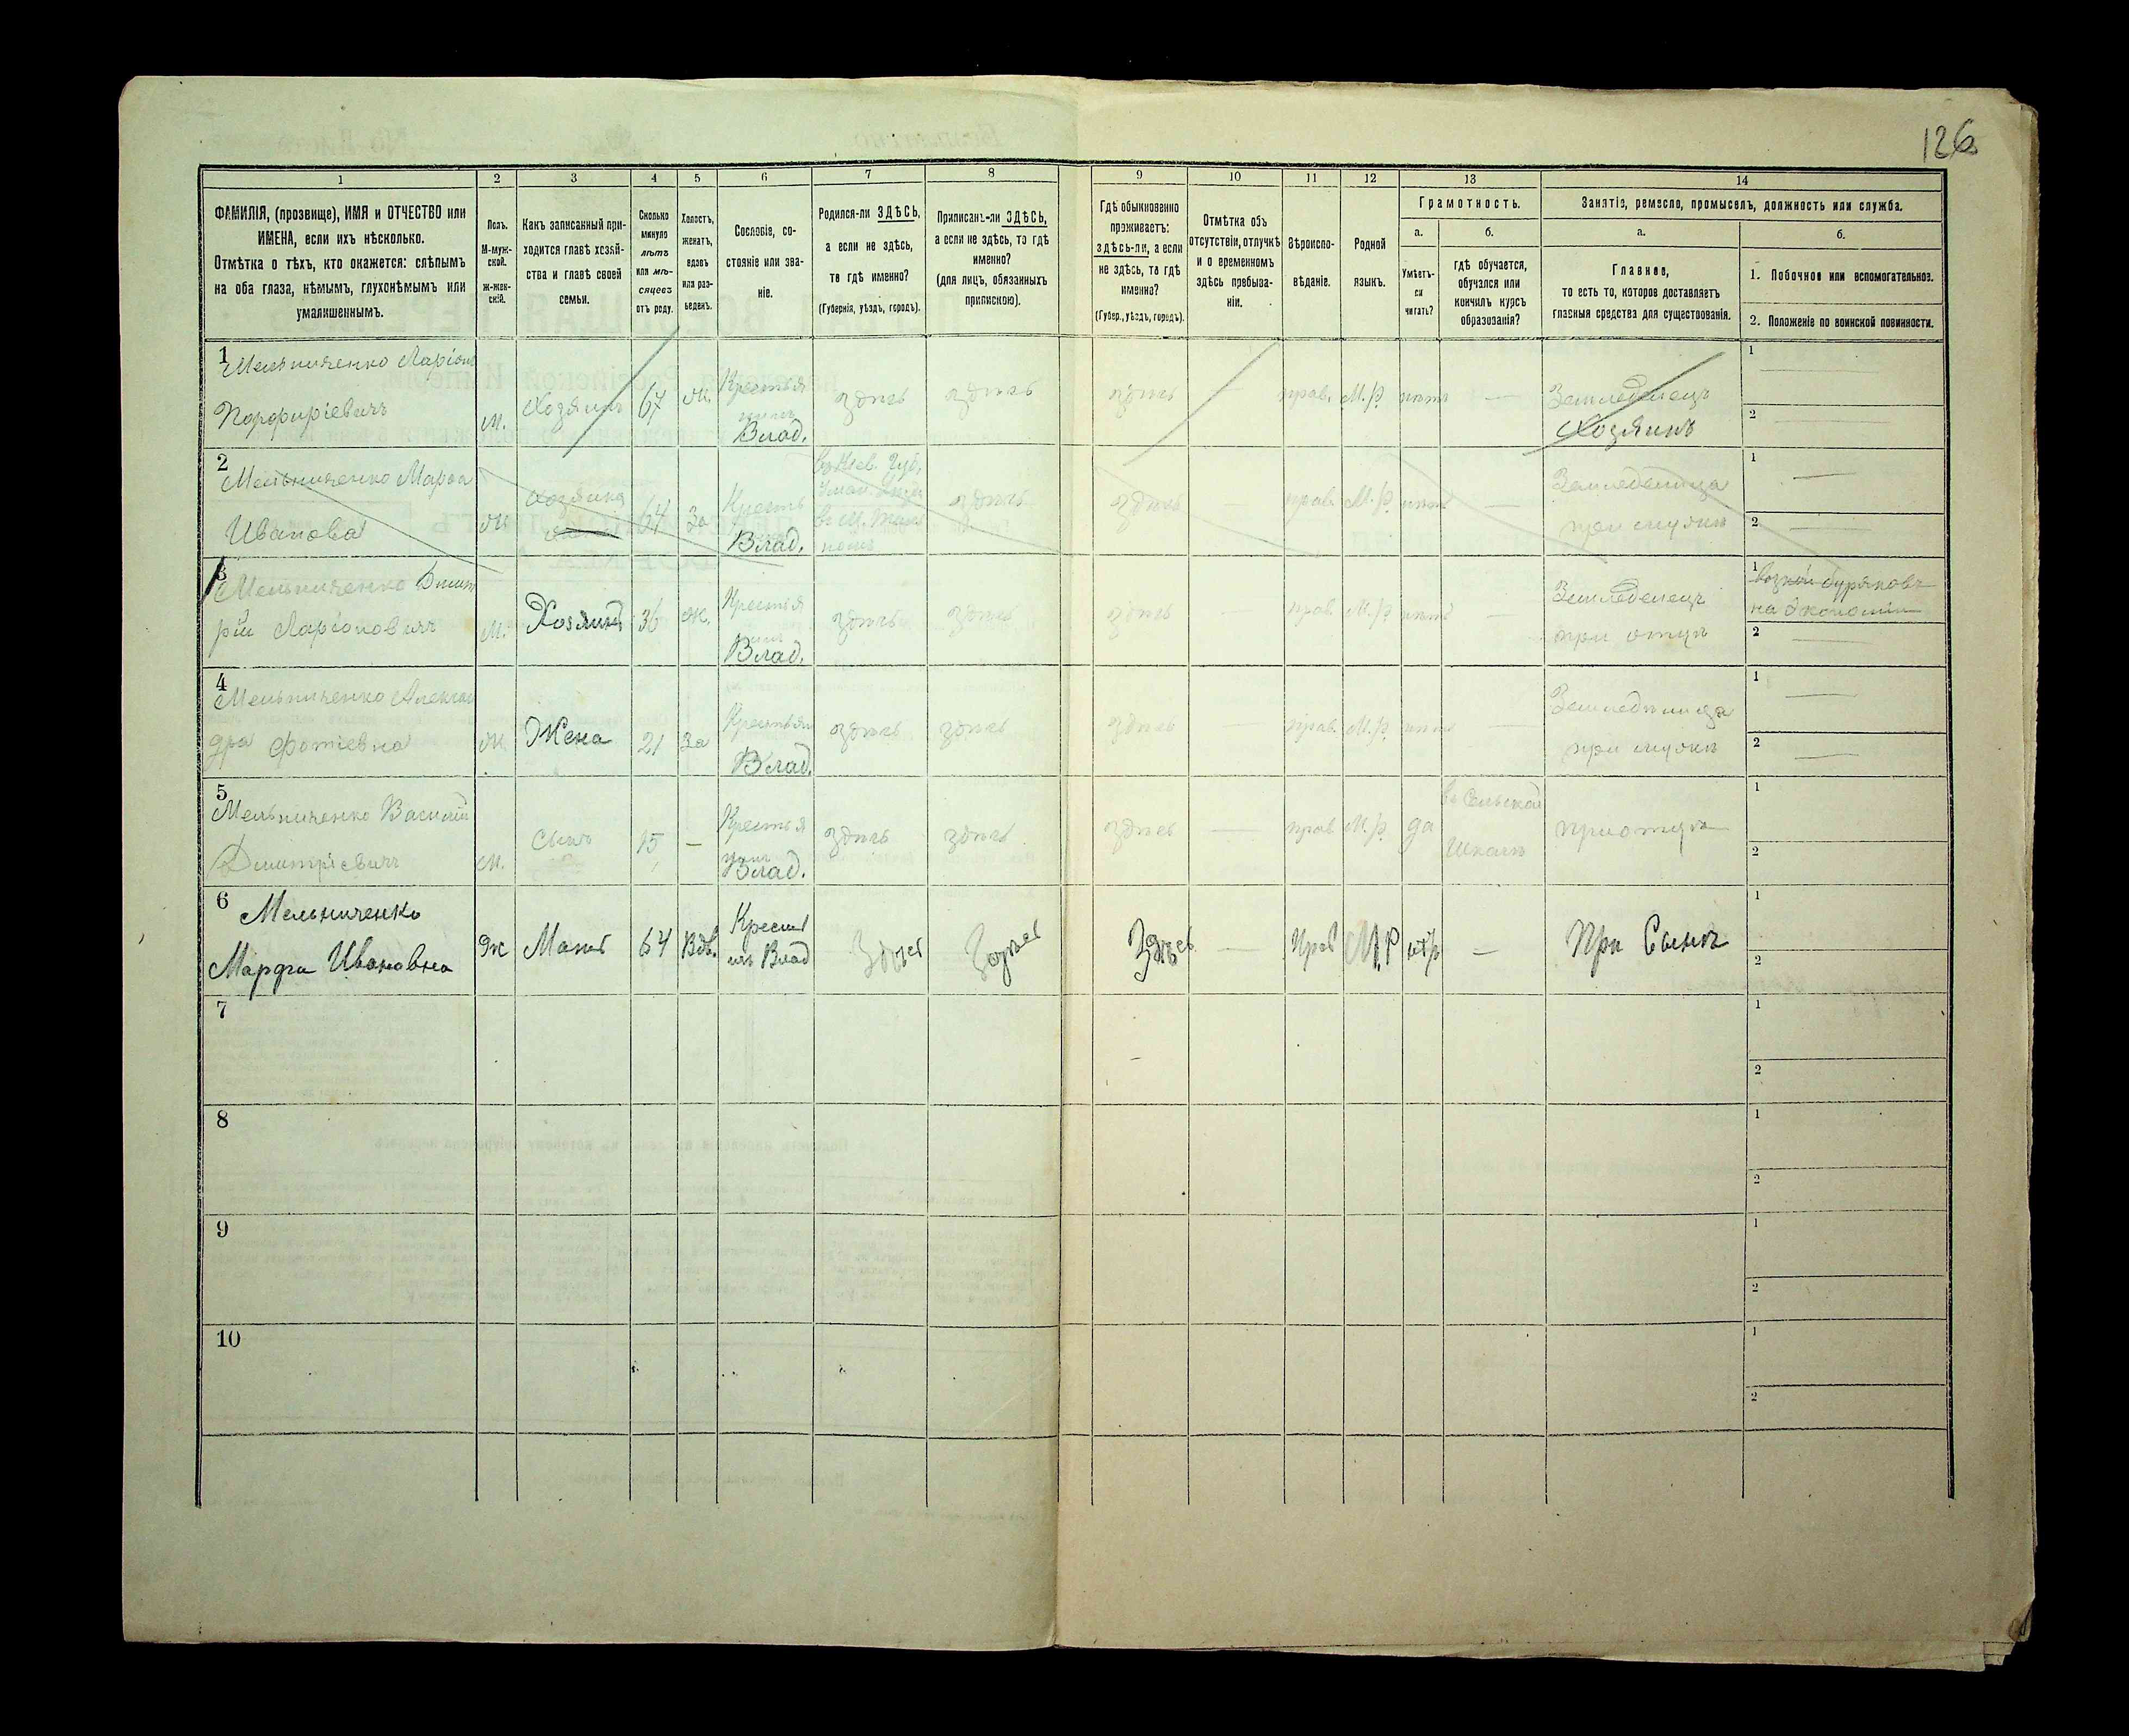 126
1
2
3
4
5
6
7
8
9
10
11
12
13
14
ФАМИЛІЯ, (прозвище), ИМЯ и ОТЧЕСТВО или
ИМЕНА, если ихъ нѣсколько.
Отмѣтка о тѣхъ, кто окажется: слѣпымъ
на оба глаза, нѣмымъ, глухонѣмымъ или
умалишеннымъ.
Полъ.
М-муж-
ской.
ж-жен-
скій.
Какъ записанный при-
ходится главѣ хозяй-
ства и главѣ своей
семьи.
Сколько
минуло
лѣтъ
или мѣ-
сяцевъ
отъ роду.
Холостъ,
женатъ,
вдовъ
или раз-
веденъ.
Сословіе, со-
стояніе или зва-
ніе.
Родился-ли ЗДѢСЬ,
а если не здѣсь,
то гдѣ именно?
(Губернія, уѣздъ, городъ).
Приписанъ-ли ЗДѢСЬ,
а если не здѣсь, то гдѣ
именно?
(для лицъ, обязанныхъ
припискою).
Гдѣ обыкновенно
проживаетъ:
здѣсь-ли, а если
не здѣсь, то гдѣ
именно?
(Губер., уѣздъ, городъ).
Отмѣтка объ
отсутствіи, отлучкѣ
и о временномъ
здѣсь пребыва-
ніи.
Вѣроиспо-
вѣданіе.
Родной
языкъ.
Грамотность.
а.
Умѣетъ-
ли
читать?
б.
гдѣ обучается,
обучался или
кончилъ курсъ
образованія?
Занятіе, ремесло, промыселъ, должность или служба.
а.
Главное,
то есть то, которое доставляетъ
главныя средства для существованія.
б.
1. Побочное или вспомогательное.
2. Положеніе по воинской повинности.
1 Мельниченко Ларіонъ
Порфиріевичъ
м.
Хозяинъ
67
ж.
Крестья
нинъ
Влад.
здѣсь
здѣсь
здѣсь
—
прав.
М.р.
нѣтъ
—
Земледелецъ
Хозяинъ
1 —
2 —
2 Мельниченко Марѳа
Иванова
ж
хозяйка
64
За
Кресть
Влад.
въ Кiев. Губ.
здѣсь
здѣсь
—
прав.
М.р.
нѣтъ
—
Земледелица
при мужѣ
1 —
2 —
3 Мельниченко Димит
рій Ларіоновичъ
м.
Хозяинъ
36
ж.
Крестья
нинъ
Влад.
здѣсь
здѣсь
здѣсь
—
прав
М.р.
нѣтъ
—
Земледелецъ
при отцѣ
1 возкой буряковъ
на Экономіи
2 —
4 Мельниченко Алексан
дра Фотіевна
ж
Жена
21
За
Крестьян
Влад.
здѣсь
здѣсь
здѣсь
—
прав.
М.р.
нѣтъ
—
Земледѣлица
при мужѣ
1 —
2 —
5 Мельниченко Василій
Димитріевичъ
м.
Сынъ
15
—
Крестья
нинъ
Влад.
здѣсь
здѣсь
здѣсь
—
прав
М.р.
да
въ Сельской
Школѣ
при отцѣ
1
2
6 Мельниченко
Марфа Ивановна
Ж
Мать
64
Вдв.
Крест
Влад
Здѣсь
Здѣсь
Здѣсь
—
Прав
М.Р
нѣтъ
—
При Сынѣ
1
2
7
1
2
8
1
2
9
1
2
10
1
2